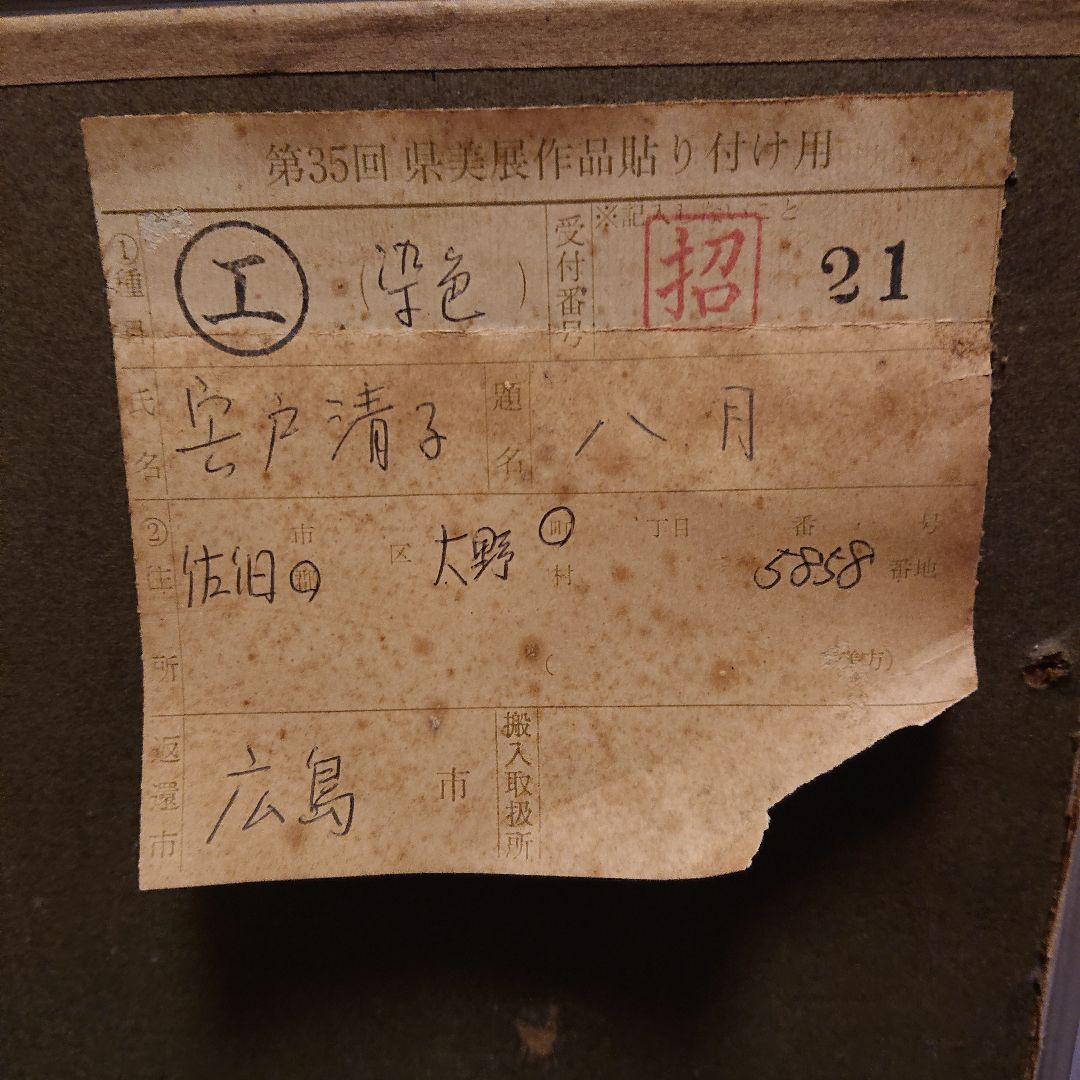 第35回 県美展作品貼り付け用
①種目 工 (染色) 受付番号 ※記入しないこと 招 21
氏名 宍戸清子 題名 八月
②住所 佐伯 市郡 区 大野 町村 丁目 番 号 5858 番地
( 方)
返還市 広島市 搬入取扱所